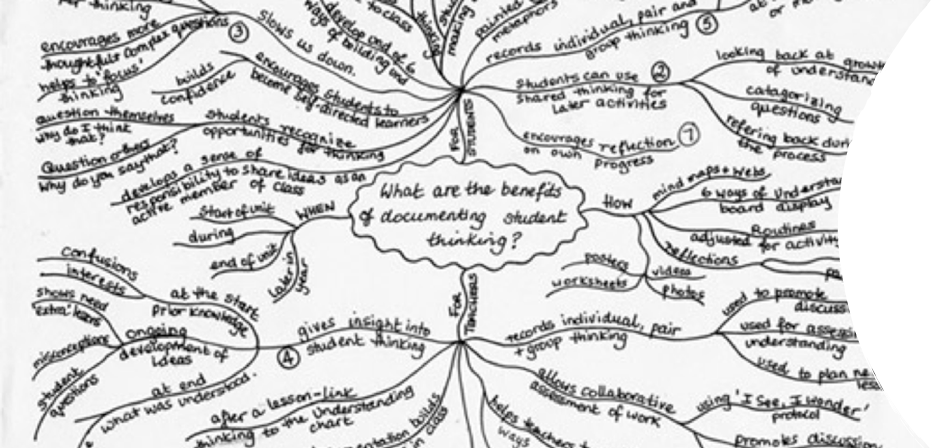 What are the benefits
of documenting student
thinking?
FOR
STUDENTS
thinking
encourages more
thoughtful & complex questions
helps to 'focus'
thinking
③
slows us down.
develop one of 6
ways
of building and
to class
making
painted
metaphors
records individual, pair and
group thinking ⑤
at
or
builds
confidence
encourages students to
become self-directed learners
question themselves
why do I think
that?
Question others
Why do you say that?
students recognize
opportunities for thinking
develops a sense of
responsibility to share ideas as an
active member of class
Students can use ②
shared thinking for
later activities
looking back at
of
catagorizing
questions
refering back
the process
encourages reflection ⑦
on own
progress
WHEN
Start of unit
during
end of unit
Later in
year
HOW
mind maps + webs
6 ways of
board display
Routines
adjusted for
reflections
posters
worksheets
videos
photos
FOR
TEACHERS
gives insight into
student thinking
④
at the start
Prior Knowledge
confusions
interests
ongoing
development of
Ideas
shows need
'extra' lessons
misconceptions
student
questions
at end
what was understood.
after a lesson - link
thinking to the Understanding
chart
builds
in class
records individual, pair
+ group thinking
used to promote
used for
understanding
used to plan
allows collaborative
assessment of work
using 'I See, I Wonder'
protocol
promotes
helps teachers
ways